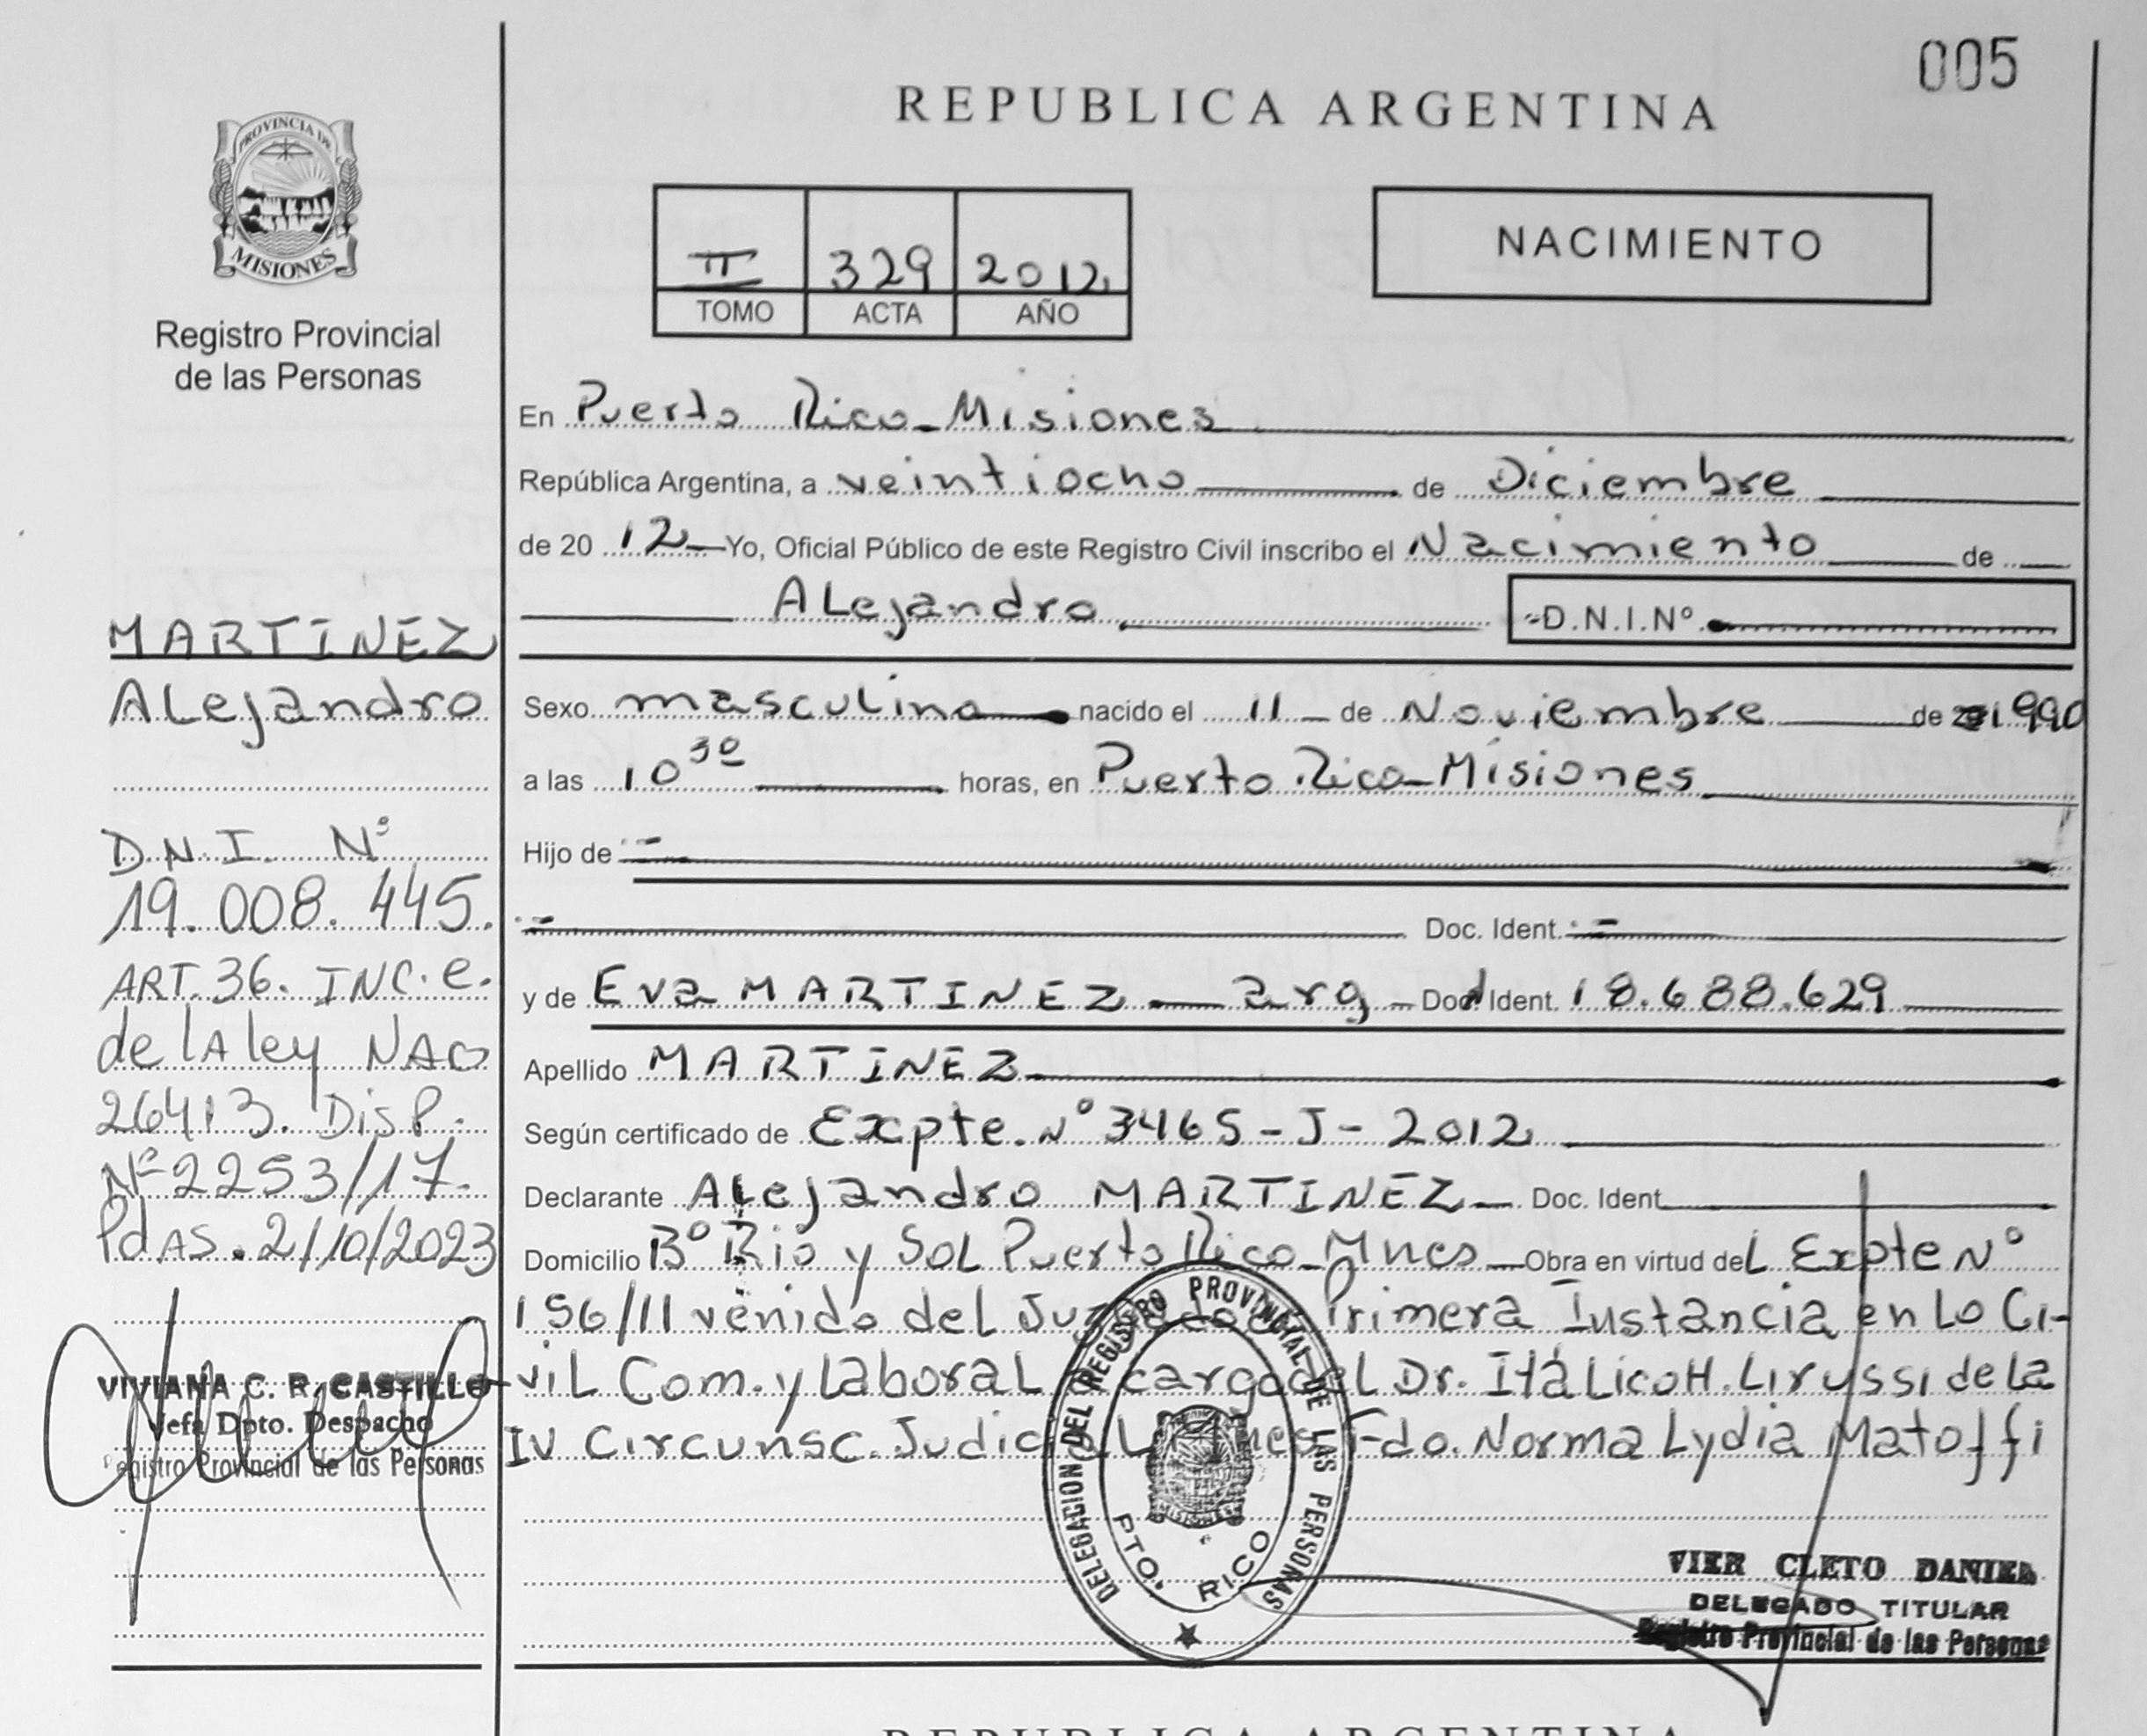 005
REPUBLICA ARGENTINA
PROVINCIA DE
MISIONES
Registro Provincial
de las Personas
II 329 2012
TOMO ACTA AÑO
NACIMIENTO
En Puerto Rico - Misiones
República Argentina, a veintiocho de Diciembre
de 20 12 Yo, Oficial Público de este Registro Civil inscribo el Nacimiento de
Alejandro
D.N.I.Nº
Sexo masculino nacido el 11 de Noviembre de 1990
a las 10 30 horas, en Puerto Rico - Misiones
Hijo de
Doc. Ident.
y de Eva MARTINEZ arg Doc. Ident. 18.688.629
Apellido MARTINEZ
Según certificado de Expte. Nº 3465 - J - 2012
Declarante Alejandro MARTINEZ Doc. Ident
Domicilio Bº Rio y Sol Puerto Rico - Mnes Obra en virtud del Expte Nº
156/11 venido del Juzgado de Primera Instancia en Lo Ci-
vil Com. y Laboral a cargo del Dr. Itálico H. Lirussi de la
IV Circunsc. Judicial Mnes Fdo. Norma Lydia Matoffi
MARTINEZ
Alejandro
D.N.I. Nº
19.008.445.
ART. 36. INC. e.
de lA ley NAC
26413. DISP.
Nº 2253/17.
PdAS. 2/10/2023
VIVIANA C. R. CASTILLO
Jefa Dpto. Despacho
Registro Provincial de las Personas
DELEGACION DEL REGISTRO PROVINCIAL DE LAS PERSONAS
PTO. RICO
MISIONES
VIER CLETO DANIEL
DELEGADO TITULAR
Registro Provincial de las Personas
REPUBLICA ARGENTINA